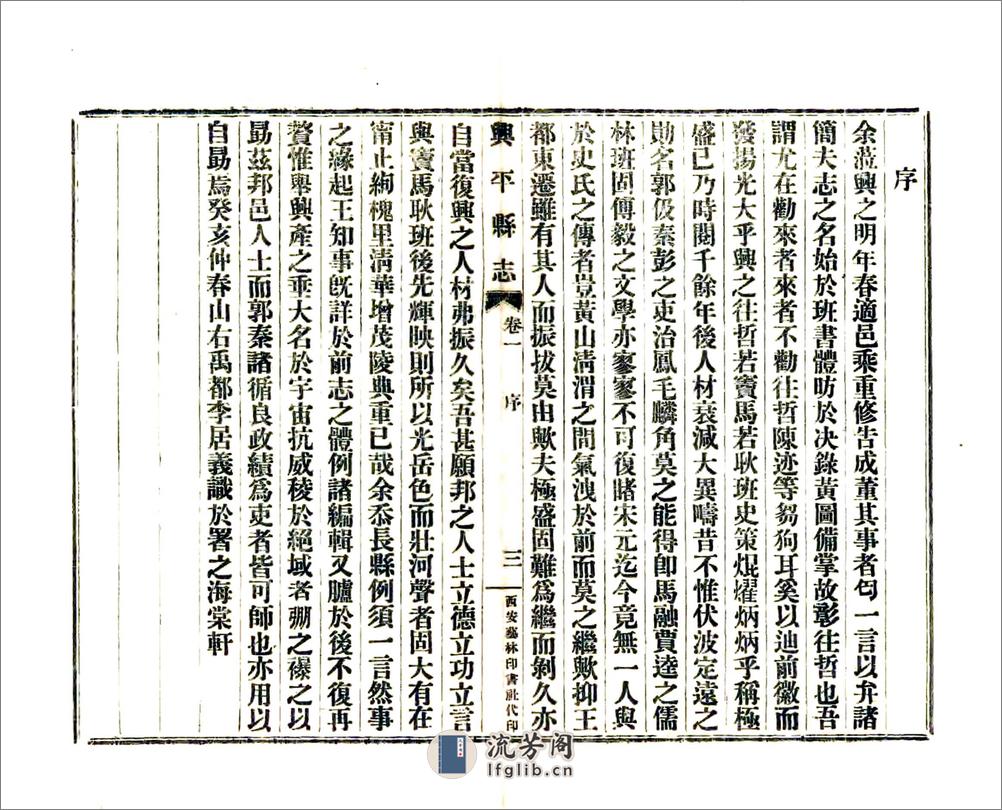 序
余蒞興之明年春適邑乘重修告成董其事者匄一言以弁諸
簡夫志之名始於班書體昉於决錄黃圖備掌故彰往哲也吾
謂尤在勸來者來者不勸往哲陳迹等芻狗耳奚以迪前徽而
發揚光大乎興之往哲若竇馬若耿班史策焜燿炳炳乎稱極
盛已乃時閱千餘年後人材衰減大異疇昔不惟伏波定遠之
勛名郭伋秦彭之吏治鳳毛麟角莫之能得卽馬融賈逵之儒
林班固傅毅之文學亦寥寥不可復賭宋元迄今竟無一人與
於史氏之傳者豈黃山淸渭之間氣洩於前而莫之繼歟抑王
都東遷雖有其人而振拔莫由歟夫極盛固難爲繼而剝久亦
興平縣志
卷一
序
三
西安藝林印書社代印
自當復興之人材弗振久矣吾甚願邦之人士立德立功立言
與竇馬耿班後先輝映則所以光岳色而壯河聲者固大有在
甯止絢槐里淸華增茂陵典重已哉余忝長縣例須一言然事
之緣起王知事旣詳於前志之體例諸編輯又臚於後不復再
贅惟舉興產之垂大名於宇宙抗威稜於絕域者弸之襮之以
勗茲邦邑人士而郭秦諸循良政績爲吏者皆可師也亦用以
自勗焉癸亥仲春山右禹都李居義識於署之海棠軒
流芳阁
lfglib.cn